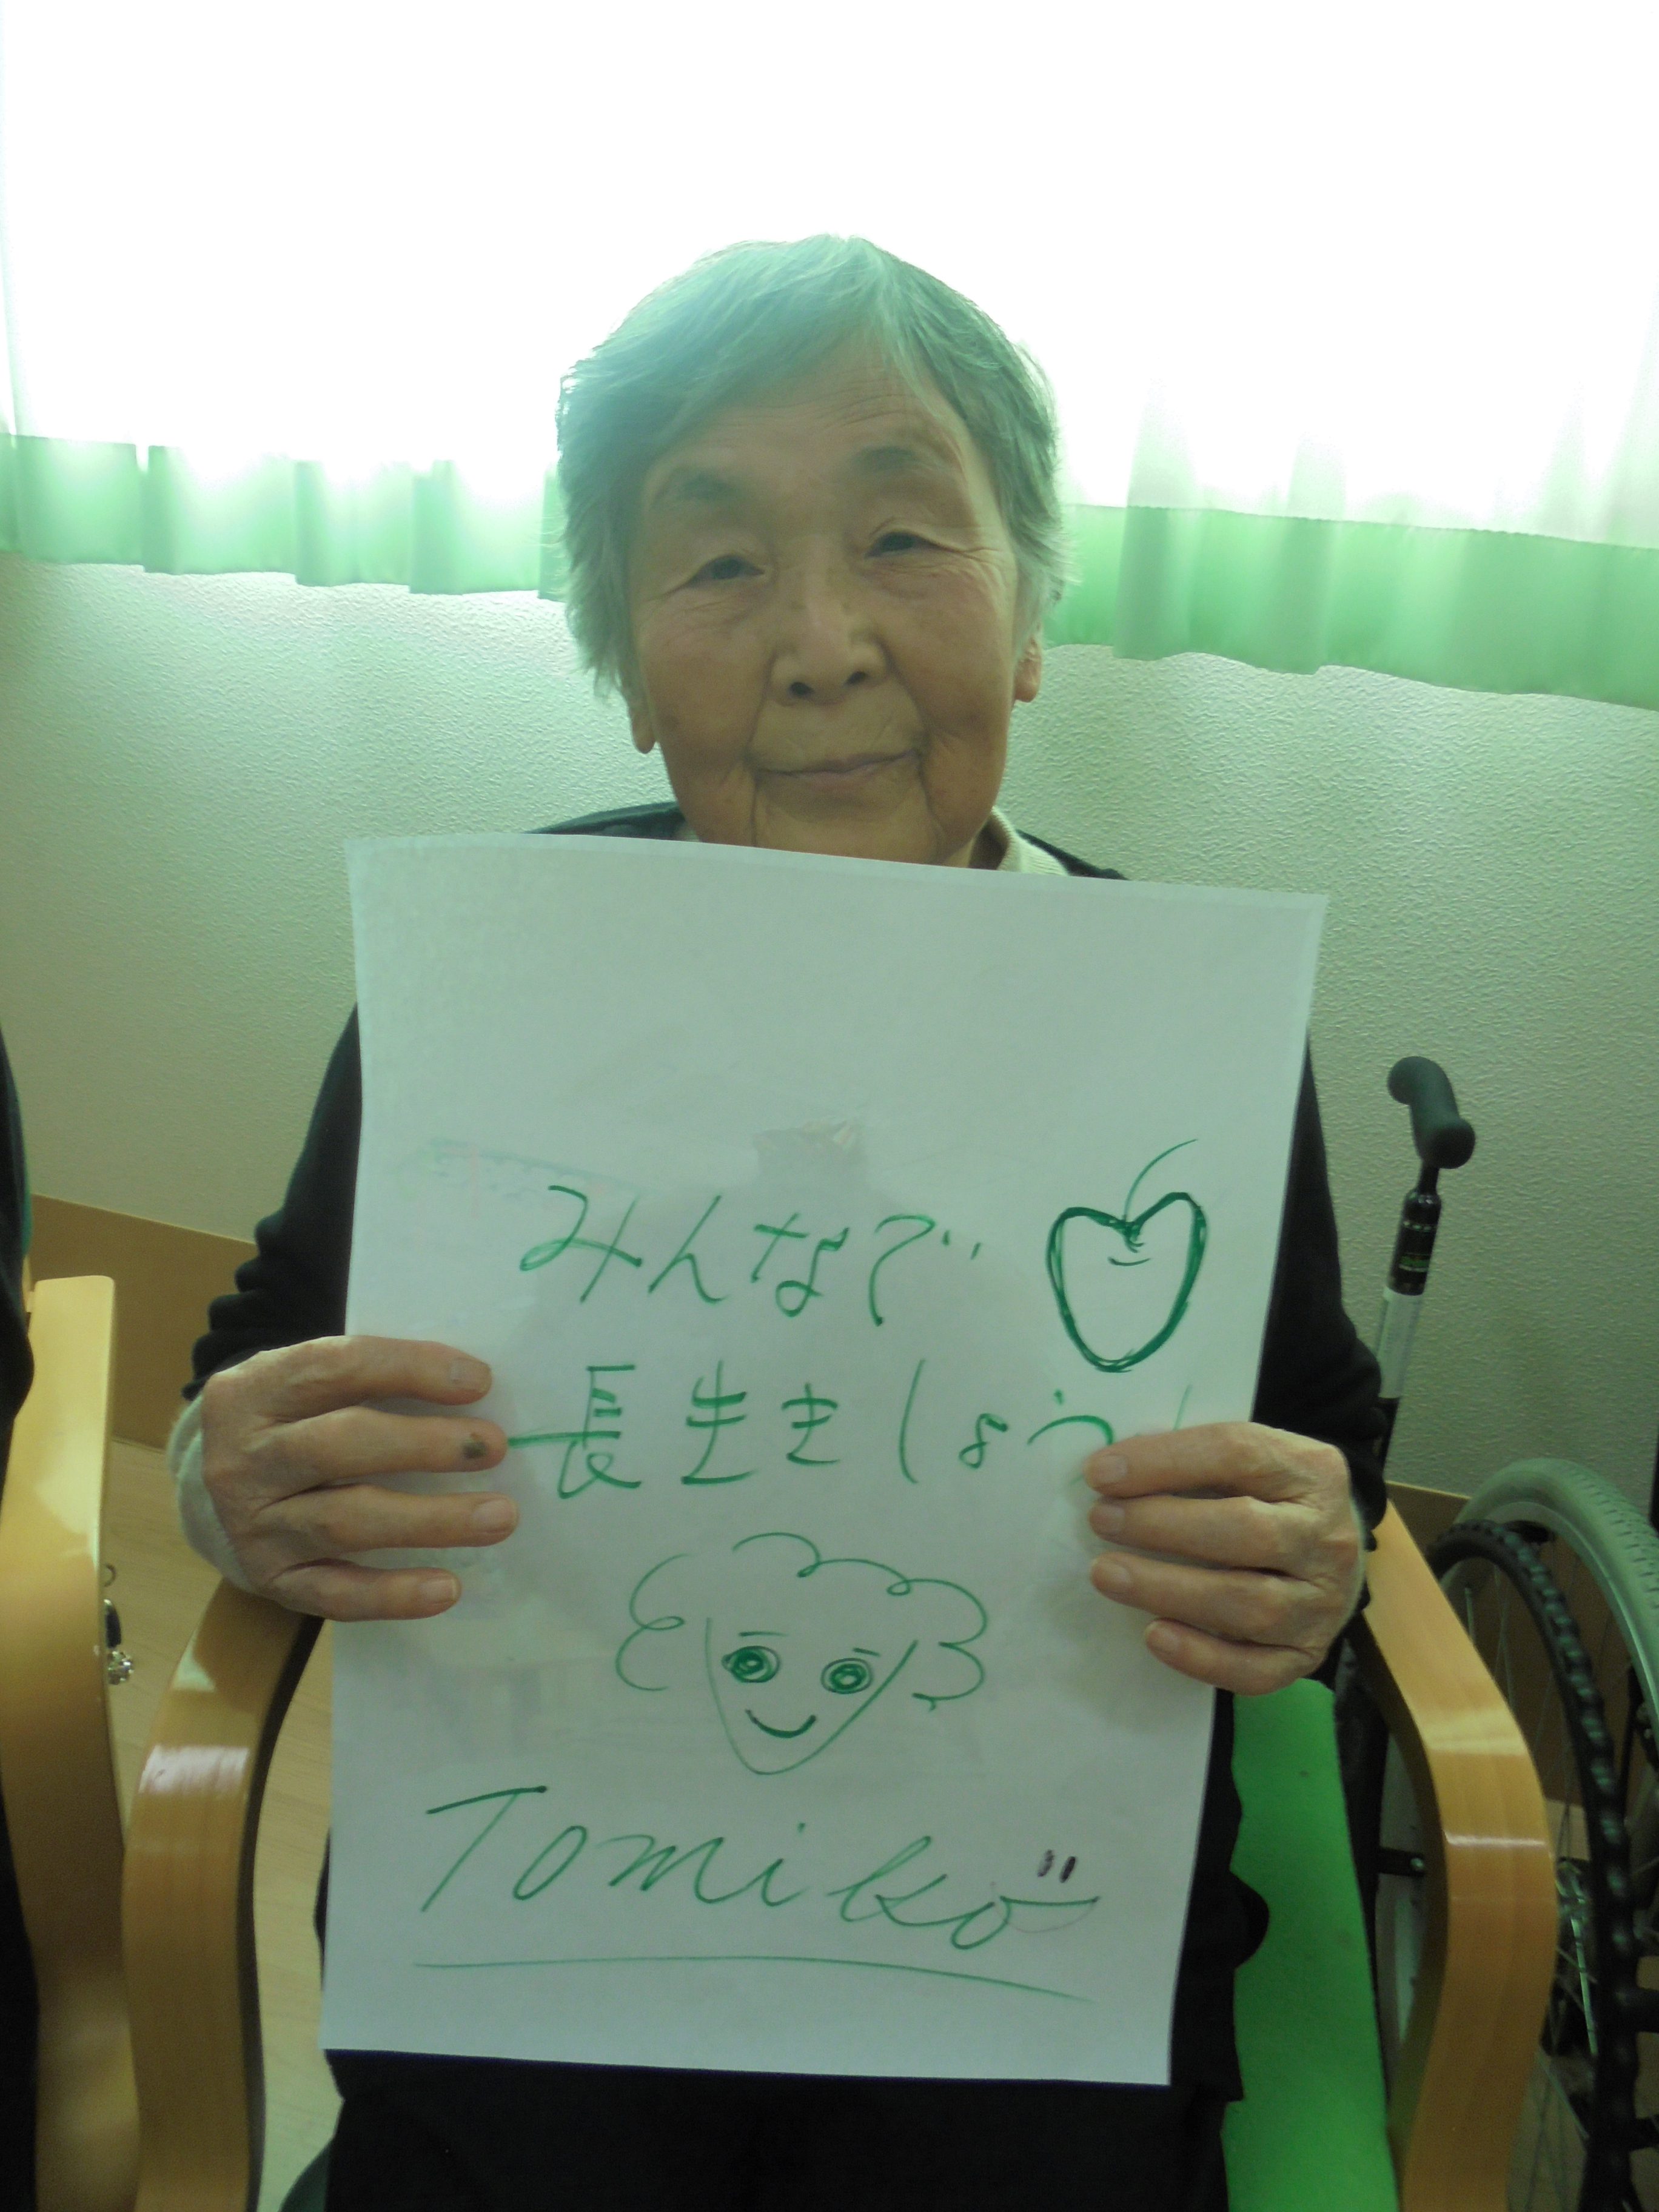 みんなで
長生きしよう!
Tomiko